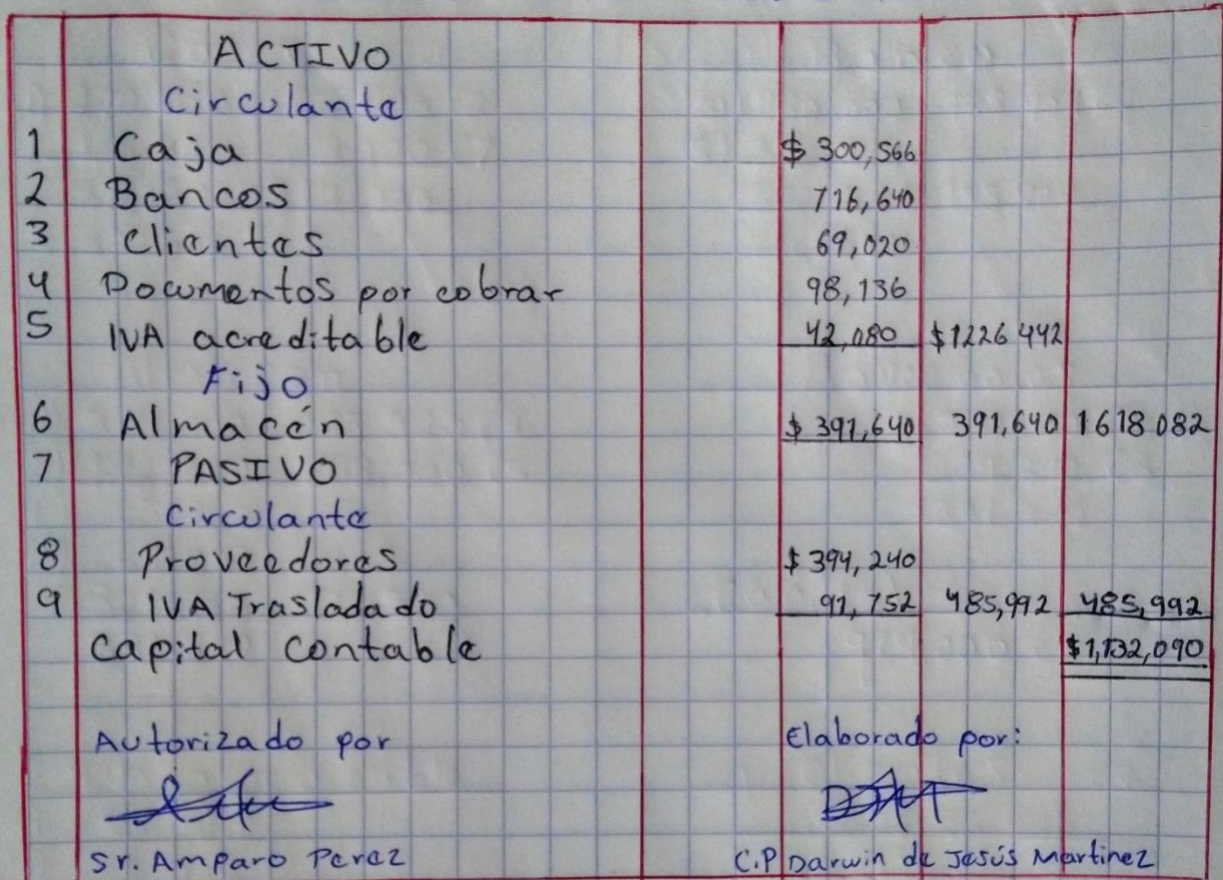 ACTIVO
Circulante
1 Caja $ 300,566
2 Bancos 716,640
3 Clientes 69,020
4 Documentos por cobrar 98,136
5 IVA acreditable 42,080 $1226 442
Fijo
6 Almacén $ 391,640 391,640 1618 082
7 PASIVO
Circulante
8 Proveedores $ 394,240
9 IVA Trasladado 91,752 485,992 485,992
Capital Contable $1,132,090
Autorizado por Elaborado por:
Sr. Amparo Perez C.P Darwin de Jesús Martinez